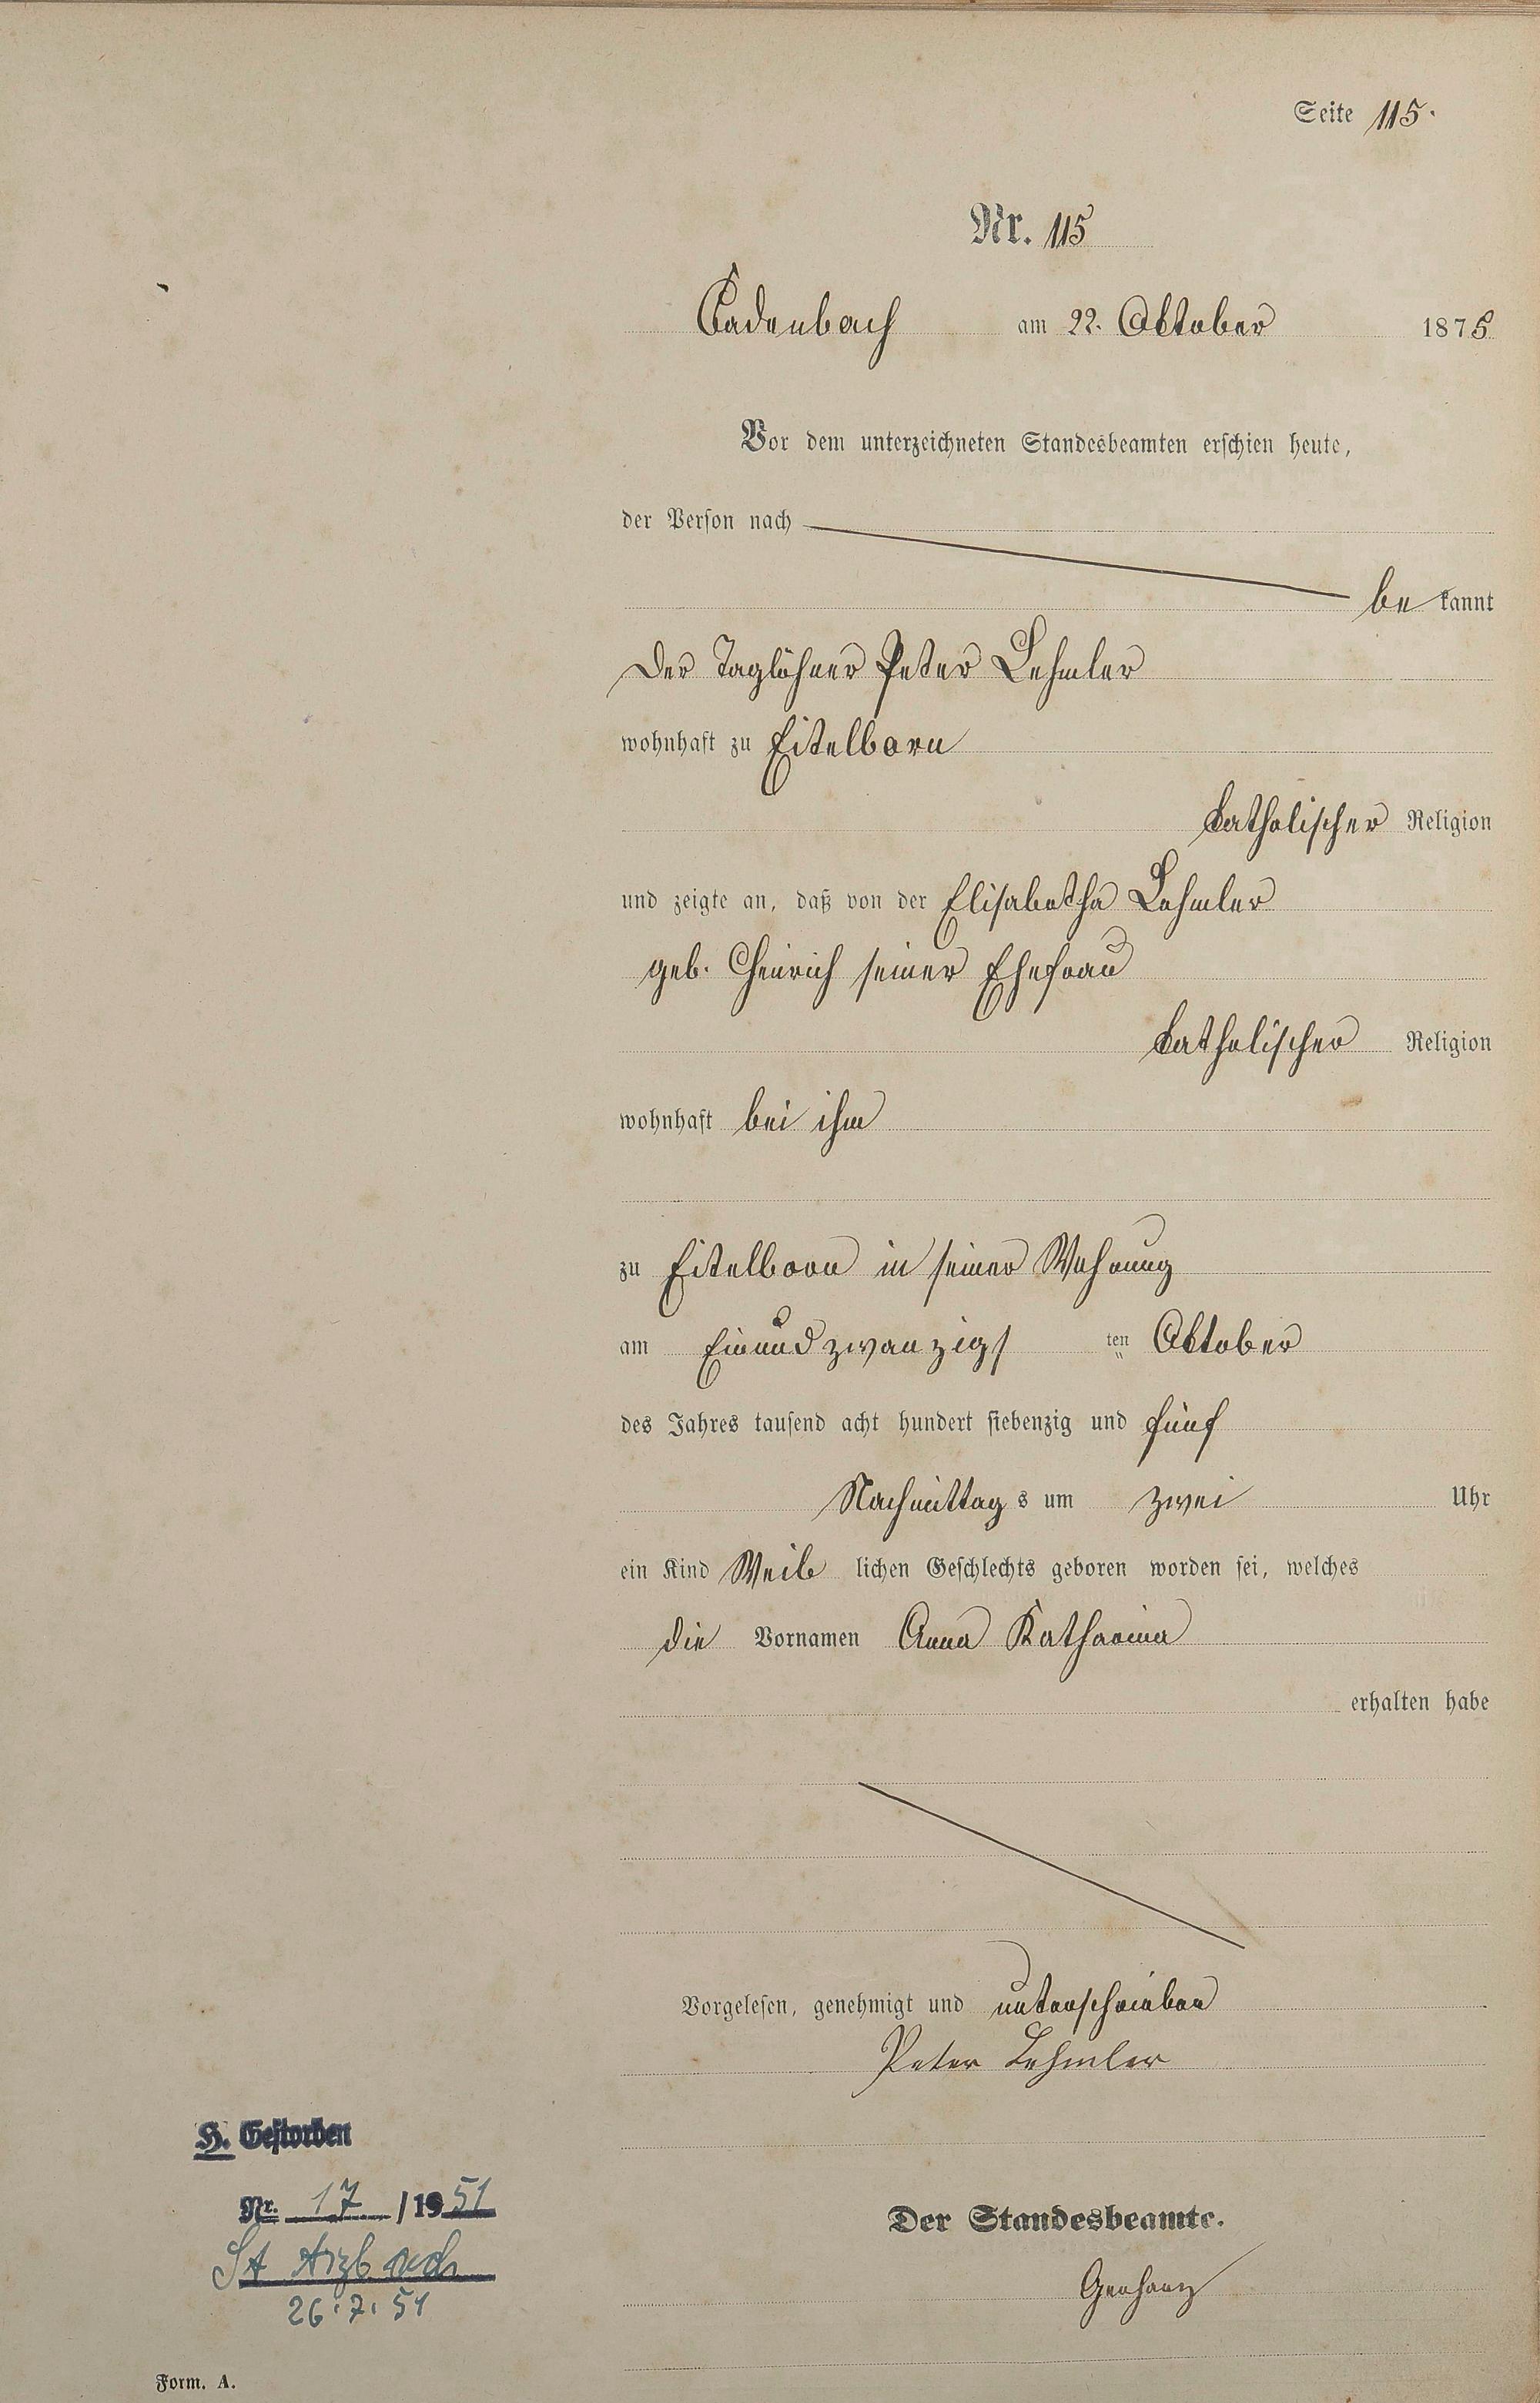 Seite 115.
Nr. 115
Cadenbach am 22. Oktober 1875
Vor dem unterzeichneten Standesbeamten erschien heute,
der Person nach
be kannt
Der Taglöhner Peter Lehmler
wohnhaft zu Eitelborn
katholischer Religion
und zeigte an, daß von der Elisabetha Lehmler
geb. Heinrich seiner Ehefrau
katholischer Religion
wohnhaft bei ihm
zu Eitelborn in seiner Wohnung
am Einundzwanzigs ten Oktober
des Jahres tausend acht hundert siebenzig und fünf
Nachmittag s um zwei Uhr
ein Kind Weib lichen Geschlechts geboren worden sei, welches
die Vornamen Anna Katharina
erhalten habe
Vorgelesen, genehmigt und unterschrieben
Peter Lehmler
Der Standesbeamte.
H. Gestorben
Nr. 17 / 1951
St Arzbach
26.7.51
Form. A.